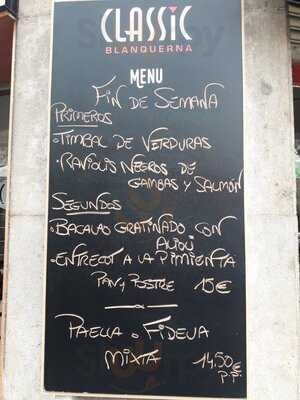 CLASSIC
BLANQUERNA
MENU
FIN DE SEMANA
PRIMEROS
• TIMBAL DE VERDURAS
• RAVIOLIS NEGROS DE
GAMBAS Y SALMÓN
SEGUNDOS
• BACALAO GRATINADO CON
ALIOLI
• ENTRECOT A LA PIMIENTA
PAN Y POSTRE 15€
PAELLA O FIDEUA
MIXTA 14,50€
P.P.